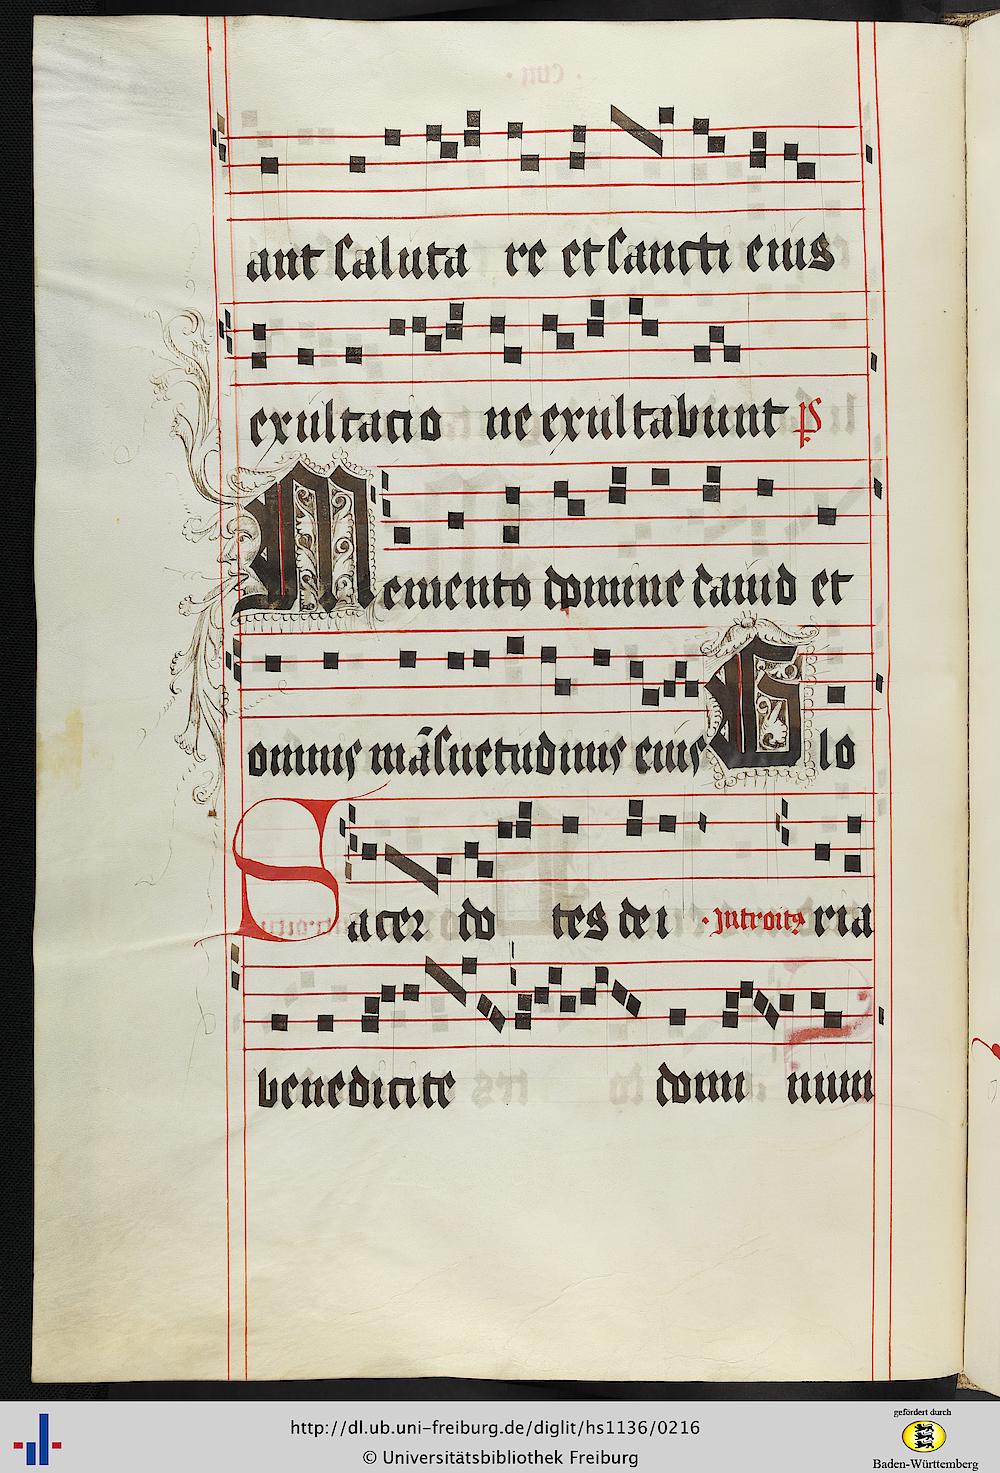 ant saluta re et sancti eius
exultatio ne exultabunt ps
Memento domine david et
omnis mãsuetudinis eius Glo
Sacer do tes dei · Introitꝰ ria
benedicite domi num
http://dl.ub.uni-freiburg.de/diglit/hs1136/0216
© Universitätsbibliothek Freiburg
gefördert durch
Baden-Württemberg